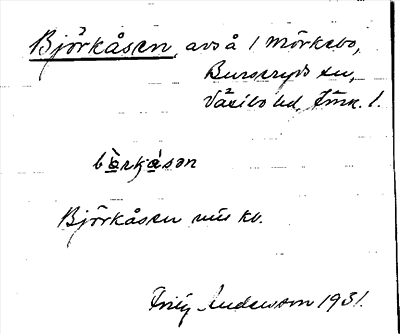 Björkåsen, avs å 1 Mörkebo,
Burseryds sn,
Västbo hd, Jönk. l.
bö̀rkåsən
Björkåsen mis kb.
Andersson 1931.